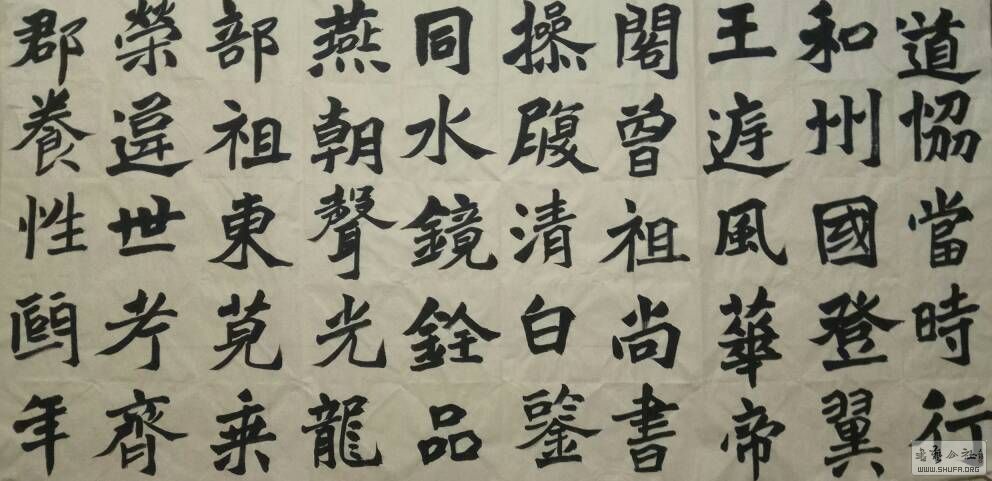 道恊當時行
和州國登翼
王遊風華帝
閣曾祖尚書
操履清白鋻
同水鏡銓品
燕朝聲光龍
部祖東莞乘
榮違世考齊
郡養性頤年
书艺公社
WWW.SHUFA.ORG